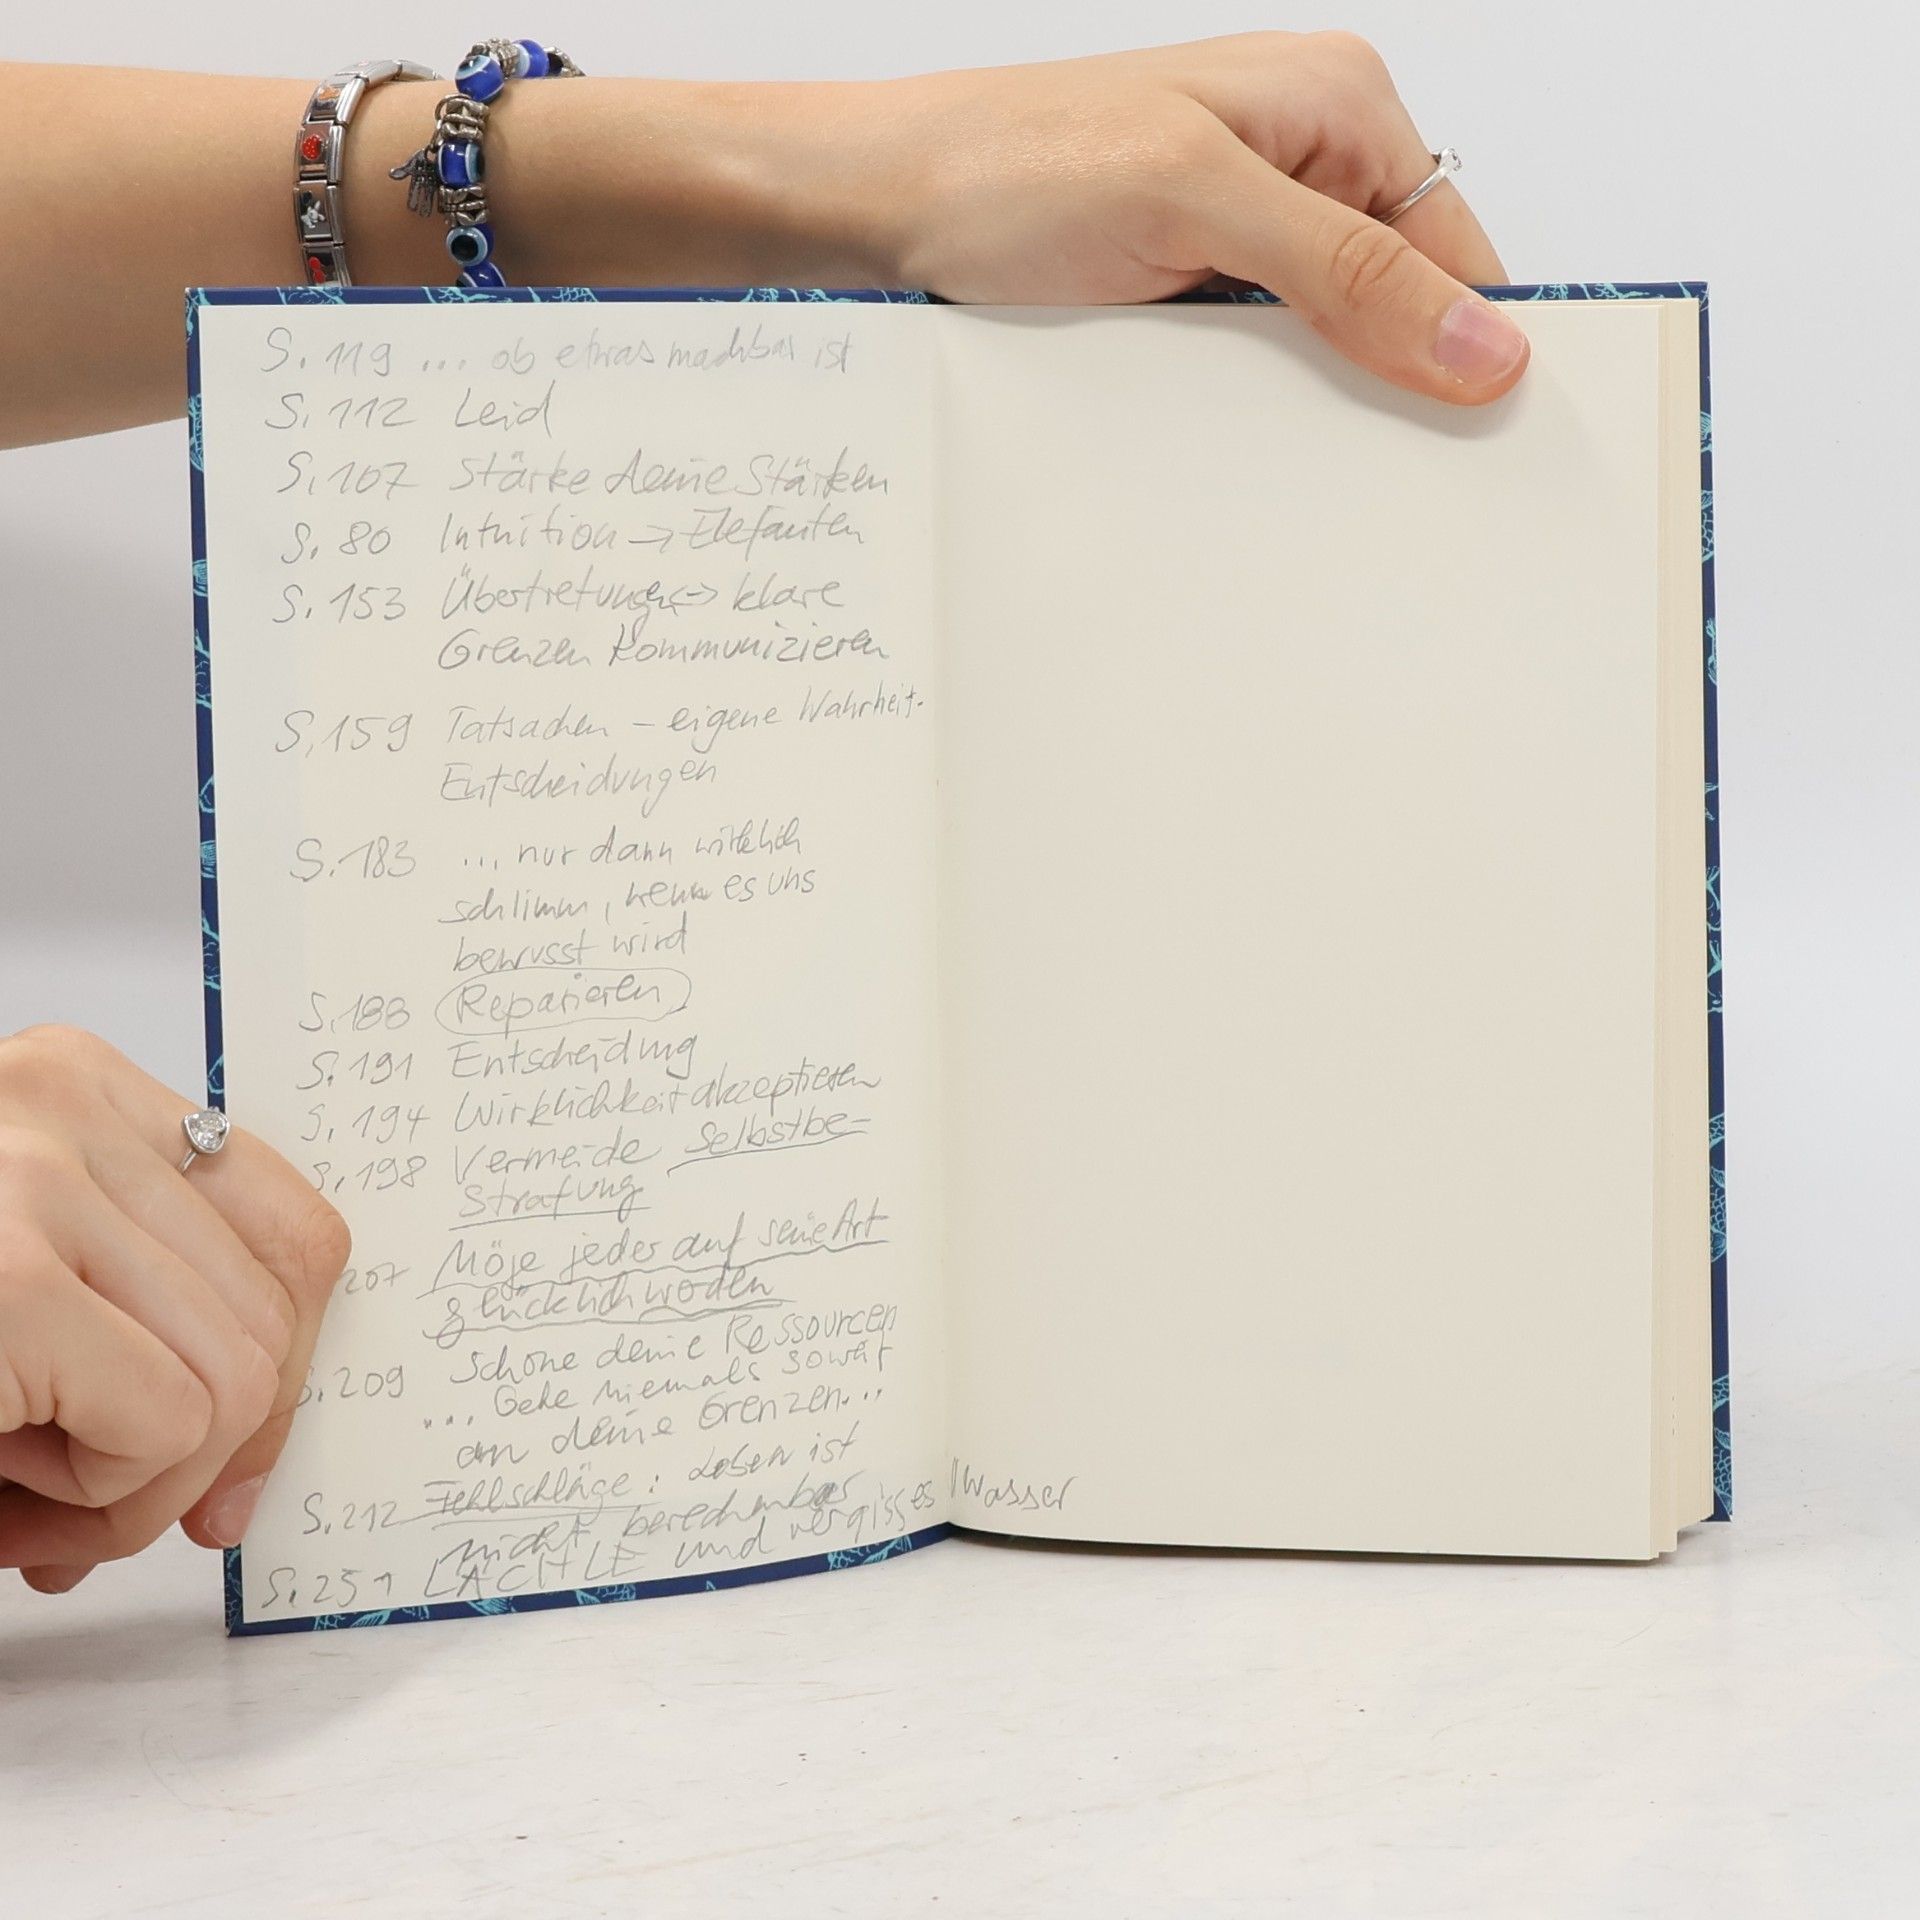 S. 119 ... ob etwas machbar ist
S. 112 Leid
S. 107 Stärke deine Stärken
S. 80 Intuition → Elefanten
S. 153 Übertretungen <-> klare
Grenzen kommunizieren
S. 159 Tatsachen – eigene Wahrheit-
Entscheidungen
S. 183 ... nur dann wirklich
schlimm, wenn es uns
bewusst wird
S. 188 Reparieren
S. 191 Entscheidung
S. 194 Wirklichkeit akzeptieren
S. 198 Vermeide Selbstbe-
strafung
207 Möge jeder auf seine Art
glücklich werden
S. 209 Schone deine Ressourcen
... Gehe niemals soweit
an deine Grenzen...
S. 212 Fehlschläge: Leben ist
nicht berechenbar
S. 251 LÄCHLE und vergiss es / Wasser